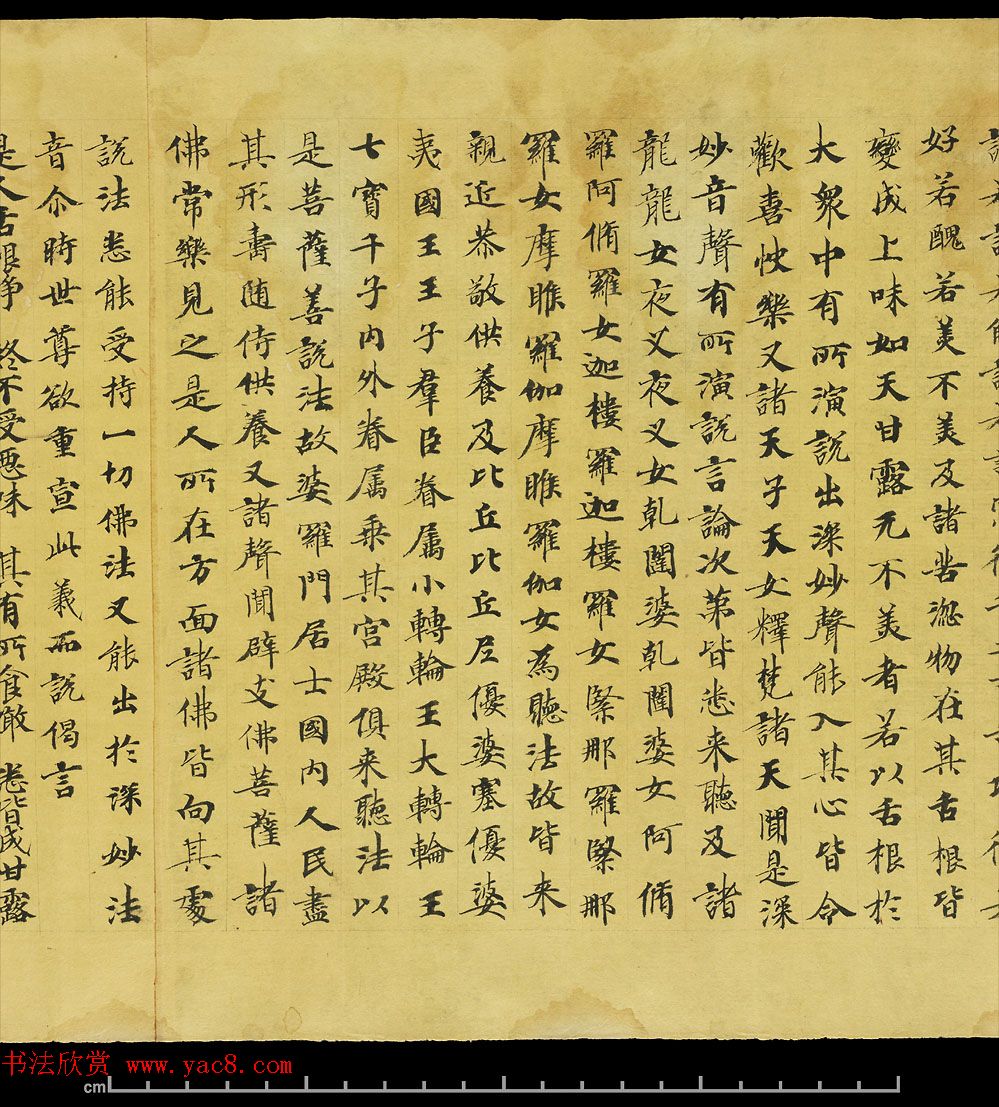 好若醜若美不美及諸苦澁物在其舌根皆
變成上味如天甘露无不美者若以舌根於
大眾中有所演說出深妙聲能入其心皆令
歡喜快樂又諸天子天女釋梵諸天聞是深
妙音聲有所演說言論次第皆悉来聽及諸
龍龍女夜叉夜叉女乹闥婆乹闥婆女阿脩
羅阿脩羅女迦樓羅迦樓羅女緊那羅緊那
羅女摩睺羅伽摩睺羅伽女為聽法故皆来
親近恭敬供養及比丘比丘尼優婆塞優婆
夷國王王子羣臣眷属小轉輪王大轉輪王
七寳千子内外眷属乗其宫殿俱来聽法以
是菩薩善說法故婆羅門居士國内人民盡
其形壽随侍供養又諸聲聞辟支佛菩薩諸
佛常樂見之是人所在方面諸佛皆向其處
說法悉能受持一切佛法又能出於深妙法
音尒時世尊欲重宣此義而說偈言
是人舌根淨 終不受惡味 其有所食噉 悉皆成甘露
书法欣赏 www.yac8.com
cm